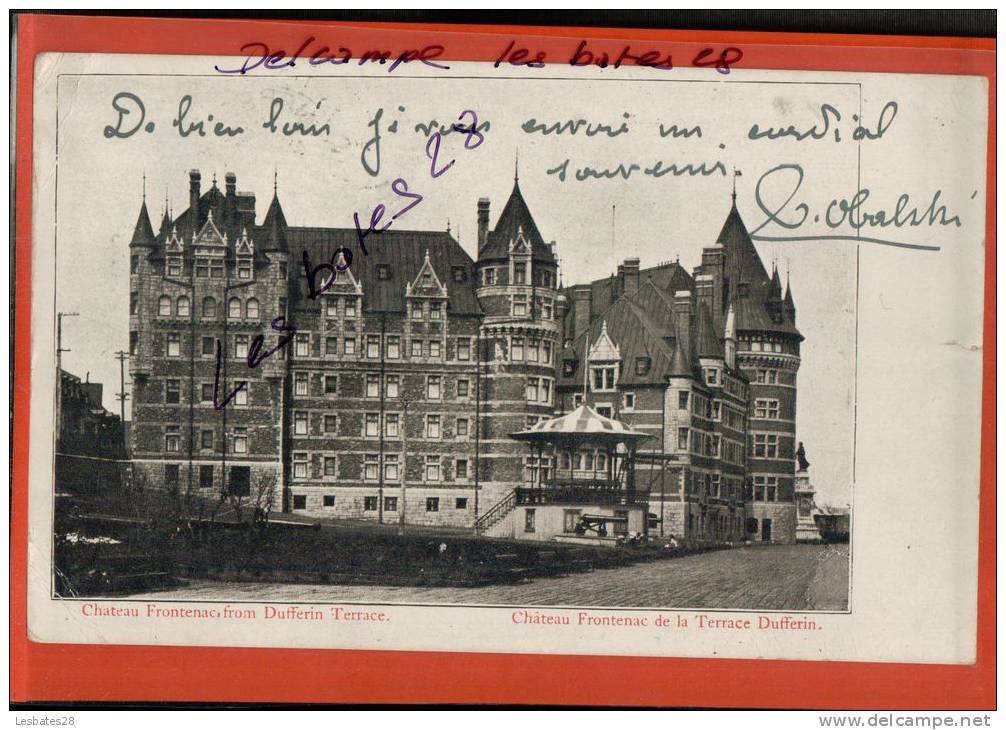 Delcampe les botes 28
De bien loin je vous envoi un cordial
souvenir
Obalski
Les botes 28
Chateau Frontenac, from Dufferin Terrace.
Château Frontenac de la Terrace Dufferin.
Lesbates28
www.delcampe.net